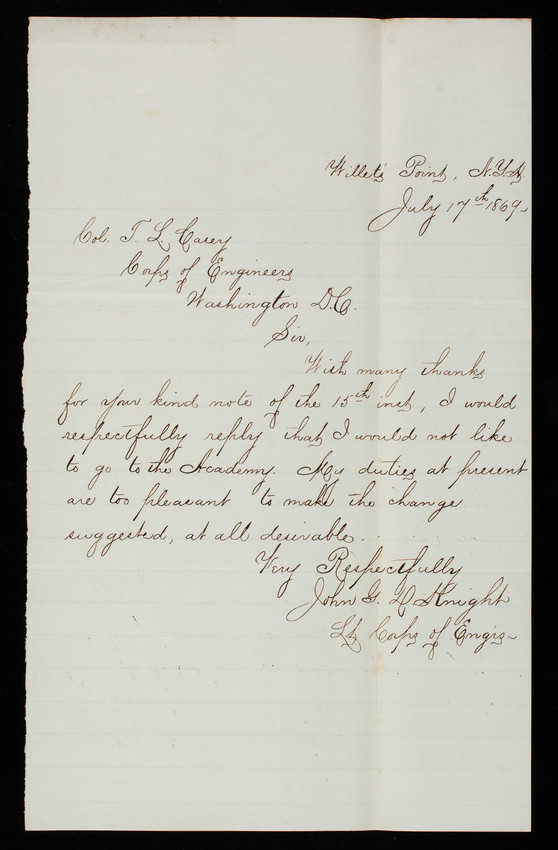 Willets Point, N.Y.H.
July 17th 1869-
Col. T. L. Casey
Corps of Engineers
Washington D.C.
Sir,
With many thanks
for your kind note of the 15th inst, I would
respectfully reply that I would not like
to go to the Academy. My duties at present
are too pleasant to make the change
suggested, at all desirable.
Very Respectfully
John G. D Knight
Lt Corps of Engrs-